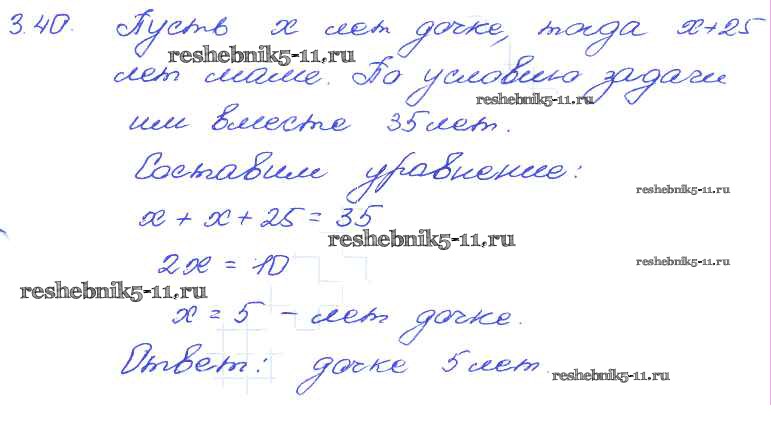 3.40. Пусть x лет дочке, тогда x+25
reshebnik5-11.ru
лет маме. По условию задачи
reshebnik5-11.ru
им вместе 35 лет.
Составим уравнение:
reshebnik5-11.ru
x + x + 25 = 35
reshebnik5-11.ru
2x = 10
reshebnik5-11.ru
reshebnik5-11.ru
x = 5 – лет дочке.
Ответ: дочке 5 лет.
reshebnik5-11.ru